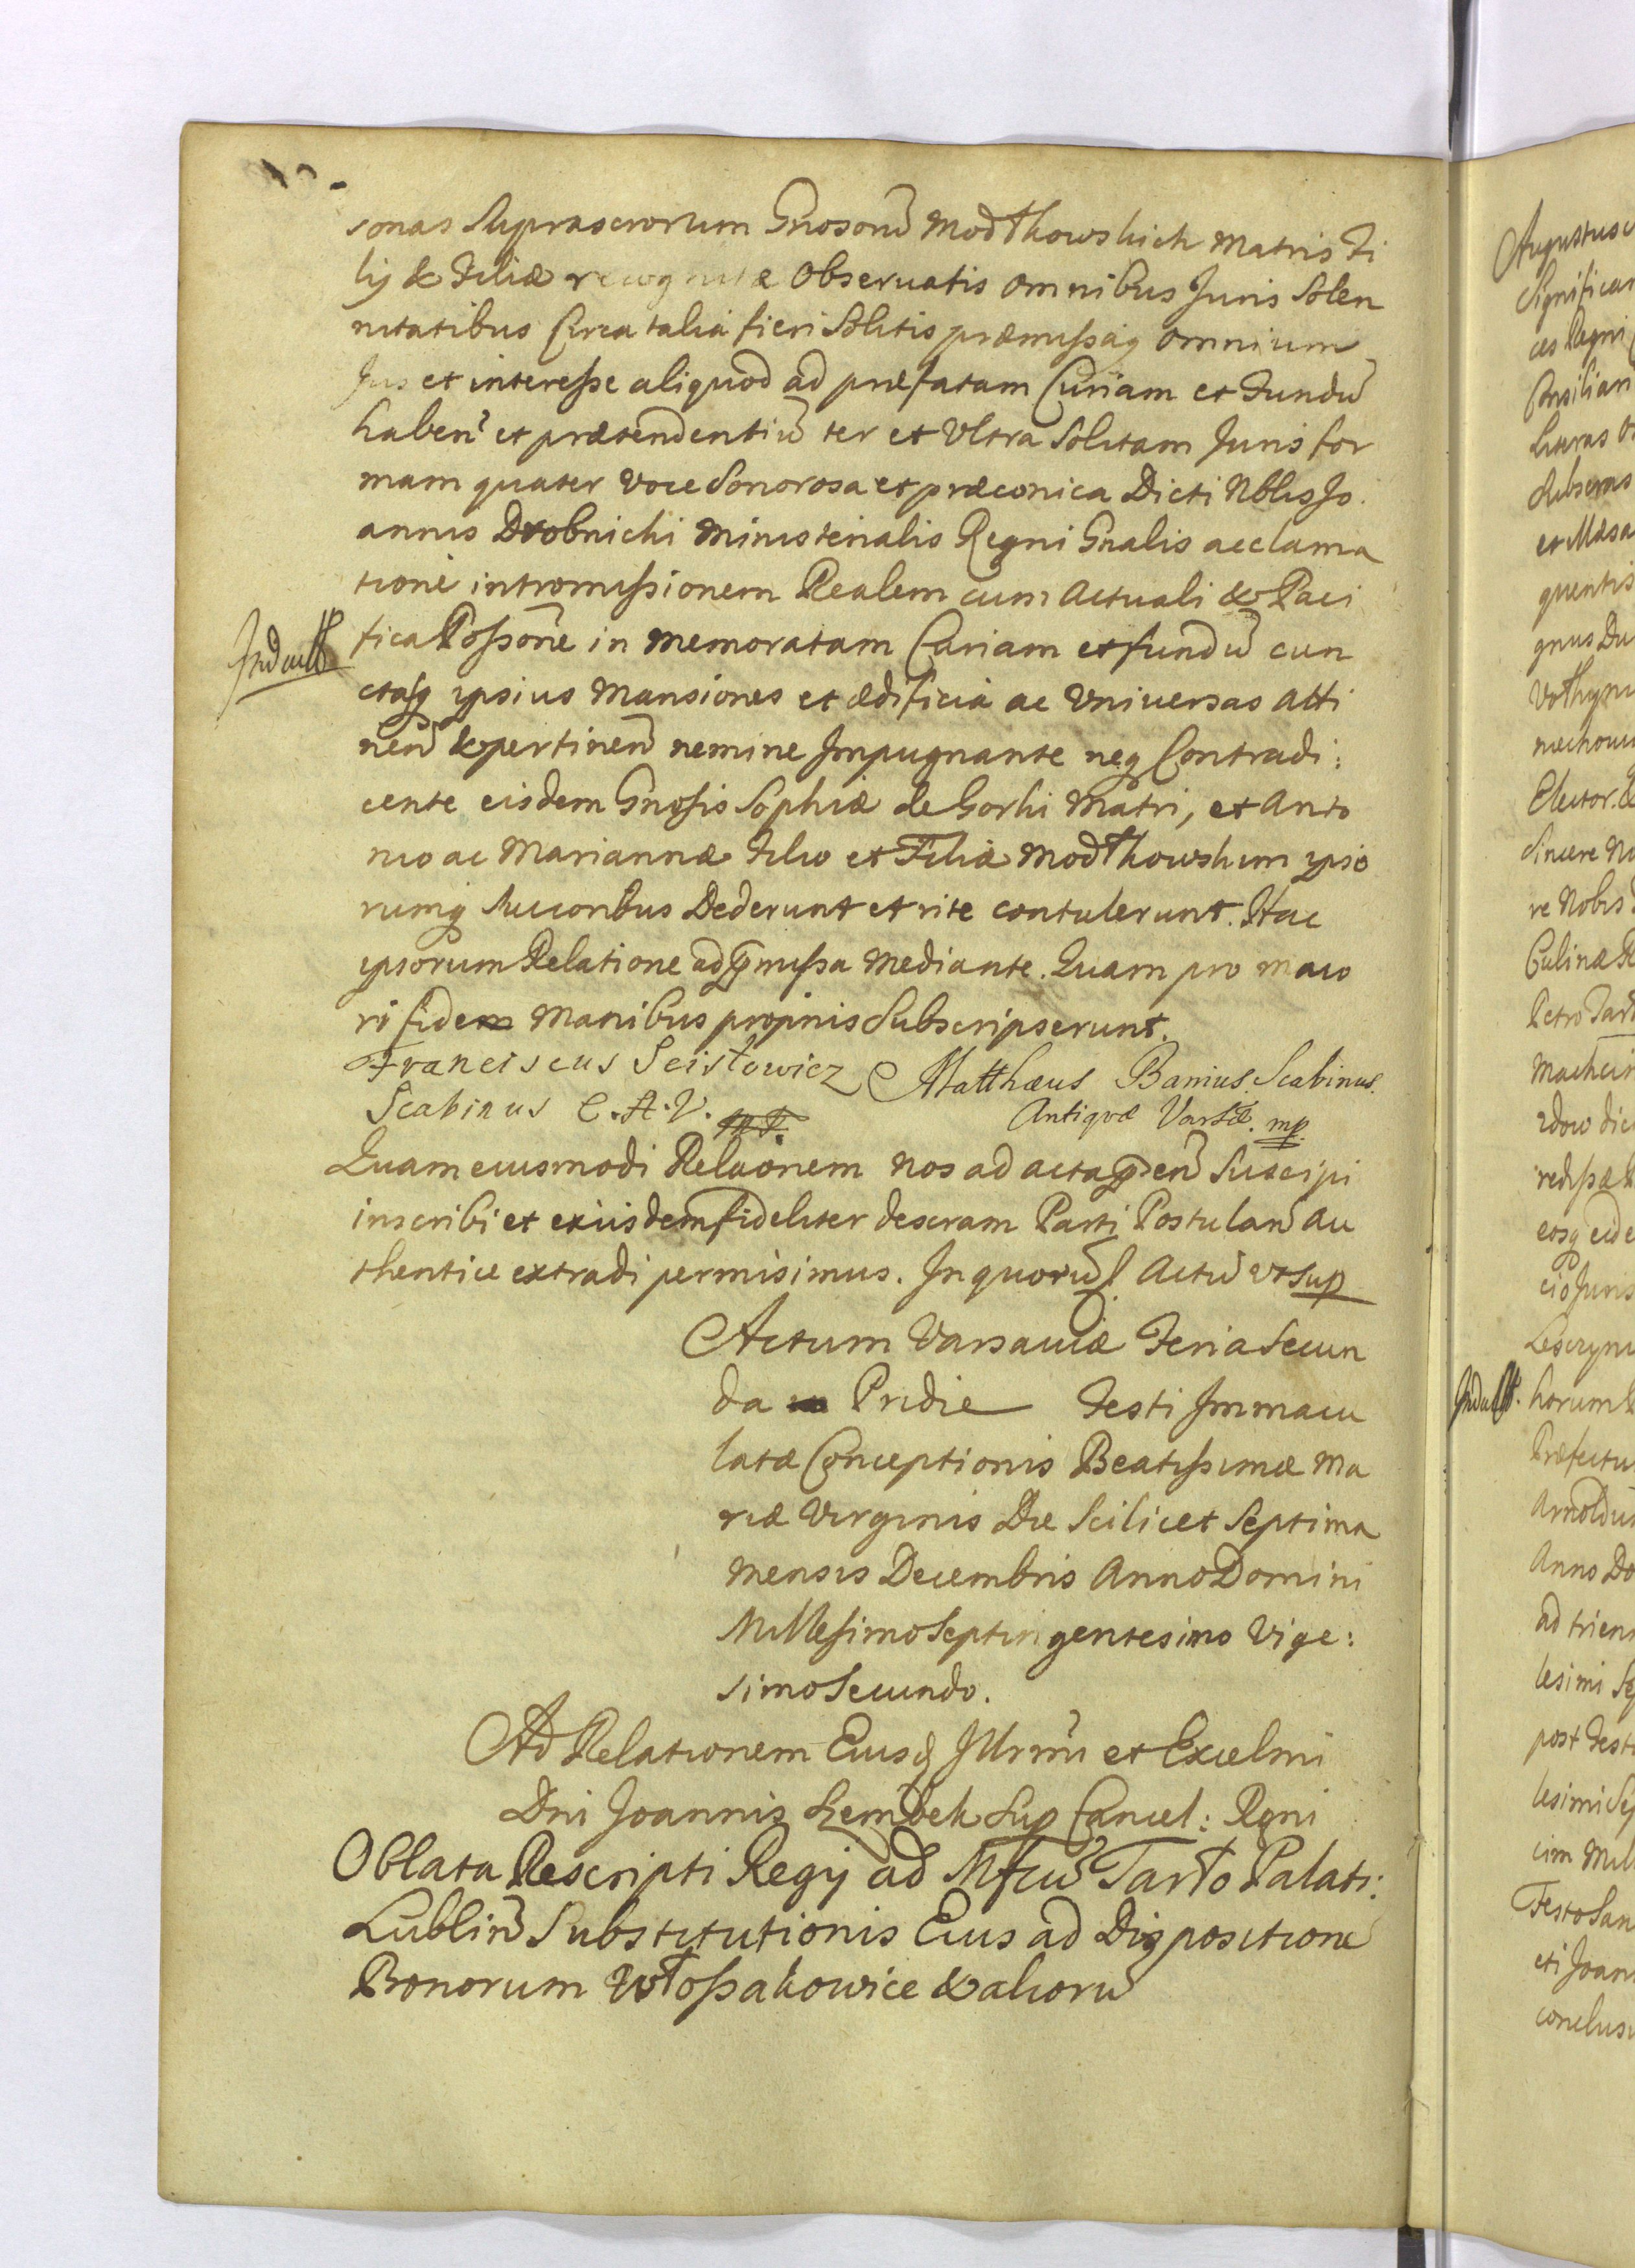 sonas suprascrorum Gnosorũ Modłkowskich Matris Fi
lij & Filiæ recognitæ Observatis omnibus Juris Solen
nitatibus Circa talia fieri Solitis præmissaq omnium
Jus et interesse aliquod ad præfatam Curiam et Fundũ
haben et prætendentiũ ter et Vltra Solitam Juris for
mam quater voce Sonorosa et præconica Dicti Nblis Jo
annis Drobnicki Ministerialis Regni Gnalis acclama
tione intromissionem Realem cum Actuali & Paci
fica Possone in Memoratam Curiam et fundũ cun
ctasq ipsius Mansiones et ædificia ac Vniversas atti
nen & pertinen nemine Impugnante neq Contradi:
cente eisdem Gnosis Sophiæ de Gorki Matri, et Anto
nio ac Mariannæ Filio et Filiæ Modłkowskim ipso
rumq succoribus Dederunt et rite contulerunt. Hac
ipsorum Relatione ad pmissa Mediante. Quam pro maio
ri fidem Manibus proprijs Subscripserunt.
Franciscus Scisłowicz
Scabinus C. A. V. mp.
Matthæus Banius. Scabinus.
Antiqvæ Varsæ. mp.
Quam eiusmodi Relaonem nos ad acta psen Suscipi
inscribi et eiusdem fideliter descram Parti Postulan au
thentice extradi permisimus. In quorũ f. Actũ vt sup
Indult
Actum Varsaviæ Feria Secun
da Pridie Festi Immacu
latæ Conceptionis Beatissimæ Ma
riæ Virginis Die Scilicet Septima
Mensis Decembris Anno Domini
Millesimo Septingentesimo Vige:
simo Secundo.
Ad Relationem Eiusd Illrmi et Excelmi
Dni Joannis Szembek Sup Cancel: Rgni
Oblata Rescripti Regij ad Mfcũ Tarło Palati:
Lublin Substitutionis Eius ad Dispositione
Bonorum Włossakowice & aliorũ
Significan
ces Regni
Consilian
Literas
et Massa
quentis
gnus Du
Elector. &
Sincere No
re Nobis
Culinæ
Petro Tar
Indult.
horum
Præfectu
Arnoldu
Anno Do
ad trien
lesimi Sep
post Festi
lesimi Sep
cim Mil
Festo San
cti Joan
conclusi